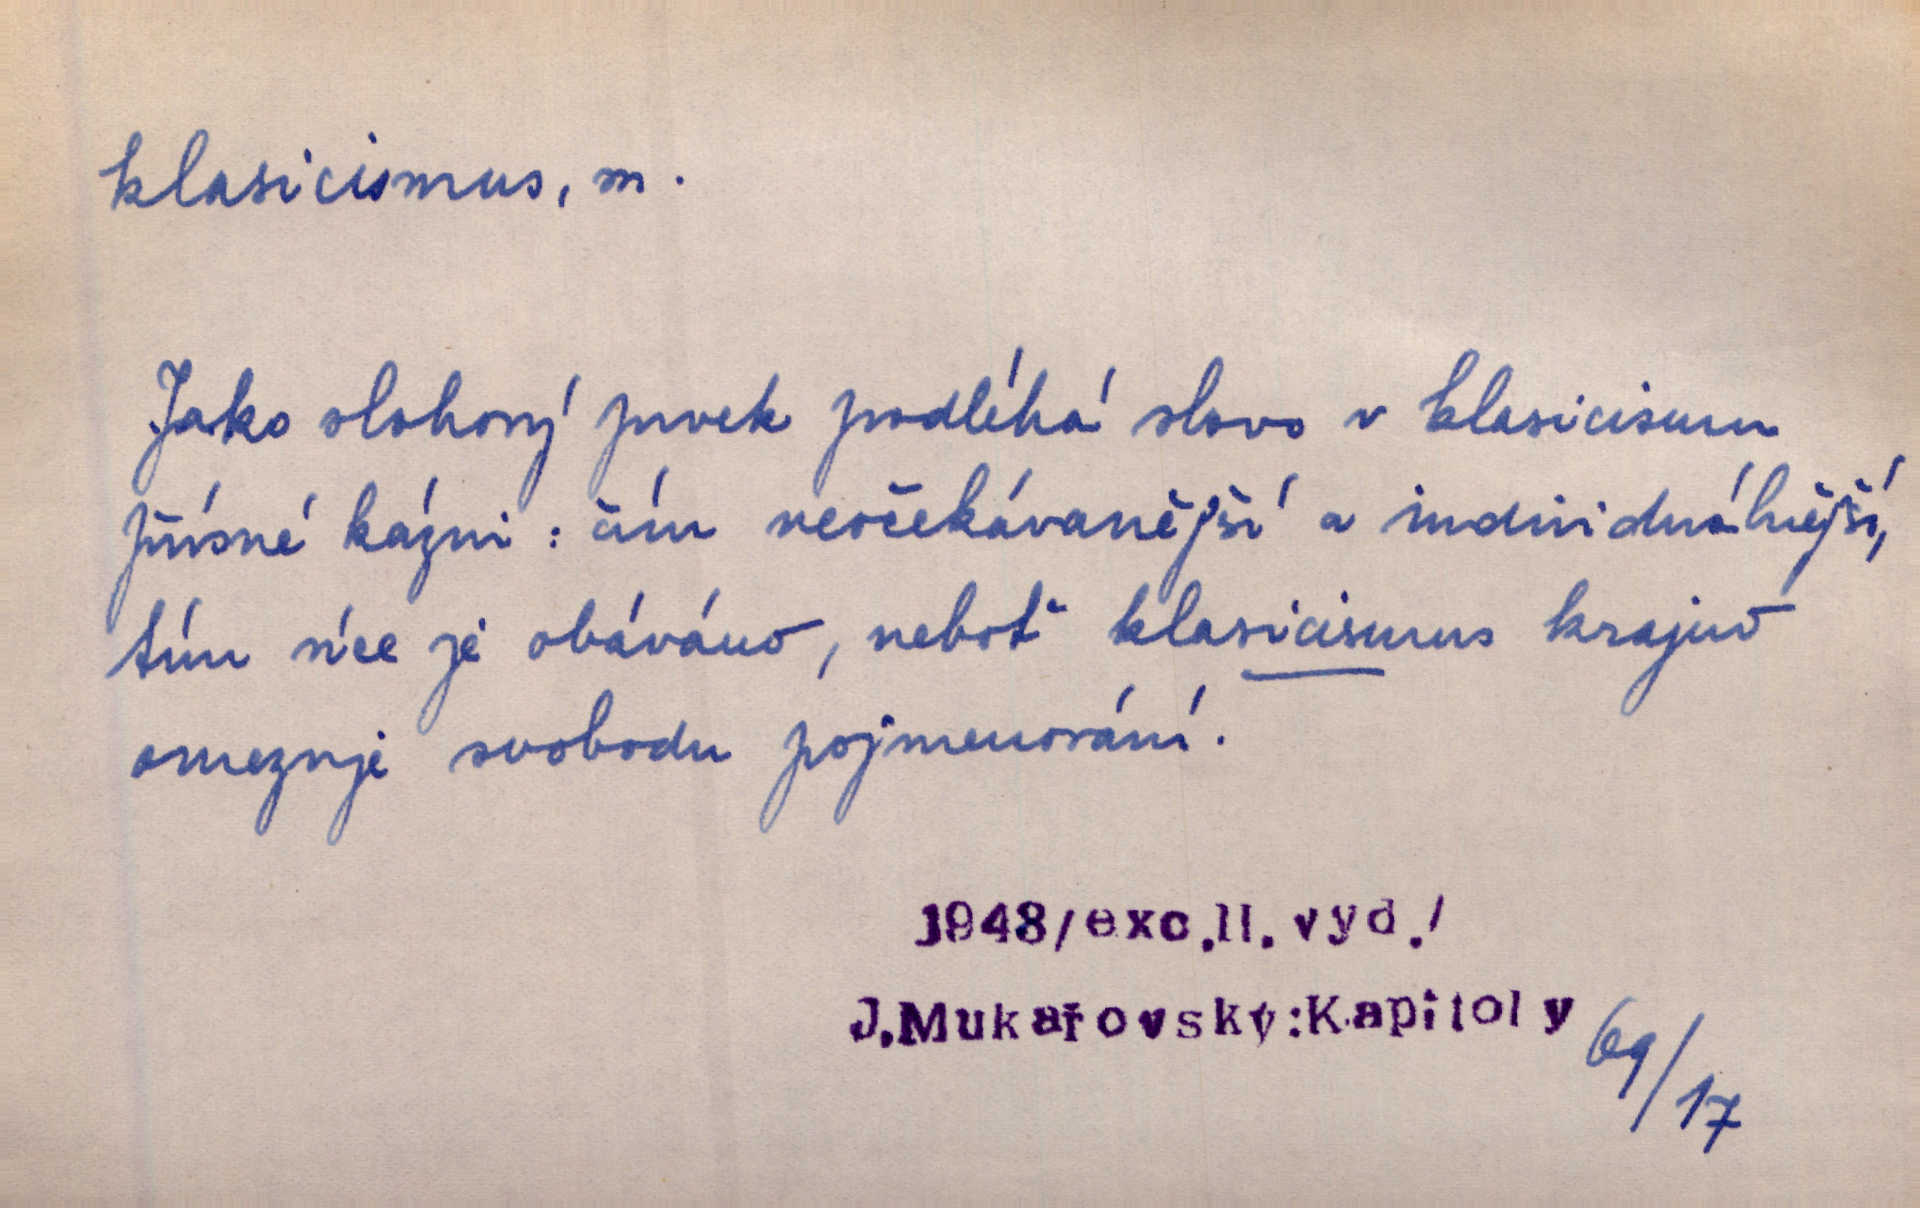 klasicismus, m.
Jako slohový prvek podléhá slovo v klasicismu
přísné kázni: čím neočekávanější a individuálnější,
tím více je obáváno, neboť klasicismus krajně
omezuje svobodu pojmenování.
1948/exc.II.vyd./
J.Mukařovský:Kapitoly 69/17